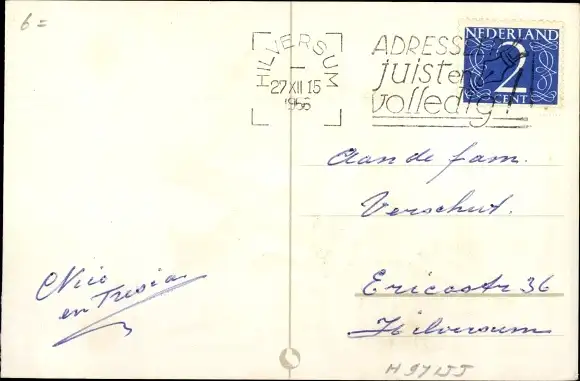 6=
HILVERSUM
27 XII 15
1956
ADRESSEER
juist en
volledig!
NEDERLAND
2
CENT
Aan de fam.
Verschut.
Ericastr 36
Hilversum
Nico
en Tresia